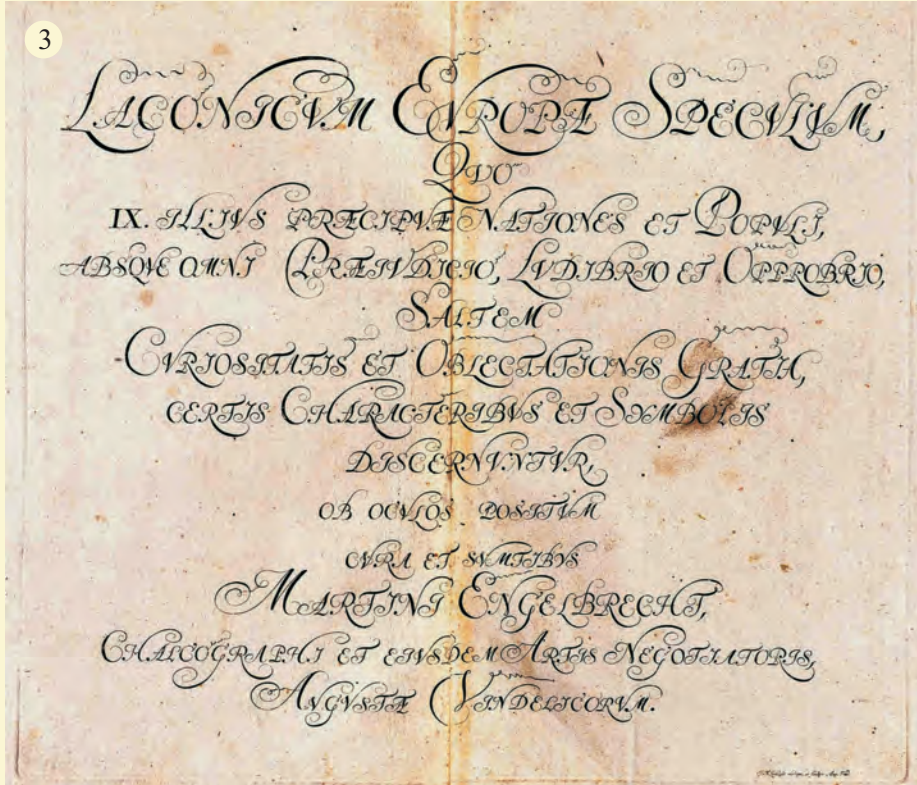 3
LACONICVM EVROPÆ SPECVLVM,
QVO
IX. ILLIVS PRÆCIPVÆ NATIONES ET POPVLI,
ABSQVE OMNI PRÆIVDICIO, LVDIBRIO ET OPPROBRIO,
SALTEM
CVRIOSITATIS ET OBLECTATIONIS GRATIA,
CERTIS CHARACTERIBVS ET SYMBOLIS
DISCERNVNTVR,
OB OCVLOS POSITVM
CVRA ET SVMTIBVS
MARTINI ENGELBRECHT,
CHALCOGRAPHI ET EIVSDEM ARTIS NEGOTIATORIS,
AVGVSTÆ VINDELICORVM.